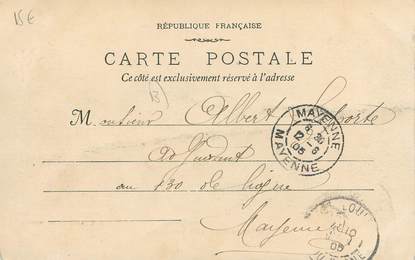 15€
RÉPUBLIQUE FRANÇAISE
CARTE POSTALE
Ce côté est exclusivement réservé à l'adresse
Monsieur Albert
Adjudant
au 130 de ligne
Mayenne
MAYENNE
12 - 6
05
MAYENNE